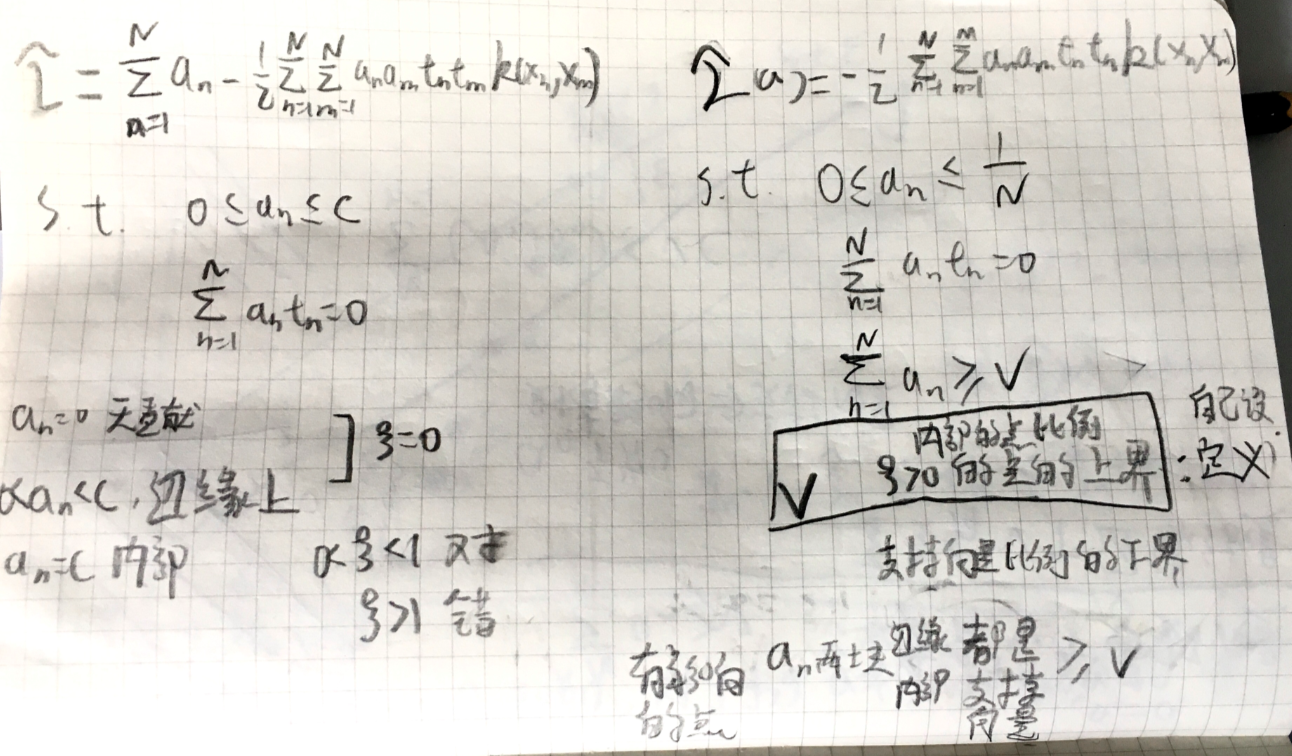 L̃ = Σ_{n=1}^{N} a_n - 1/2 Σ_{n=1}^{N} Σ_{m=1}^{N} a_n a_m t_n t_m k(x_n, x_m)
s.t. 0 ≤ a_n ≤ C
Σ_{n=1}^{N} a_n t_n = 0
a_n=0 无贡献
0<a_n<C, 边缘上
] ξ=0
a_n=C 内部 0<ξ<1 对
ξ>1 错
L̃(a) = - 1/2 Σ_{n=1}^{N} Σ_{m=1}^{N} a_n a_m t_n t_n k(x_n, x_m)
s.t. 0 ≤ a_n ≤ 1/N
Σ_{n=1}^{N} a_n t_n = 0
Σ_{n=1}^{N} a_n ≥ V
内部的点比例
V ξ>0 的点的上界
自己设
: 定义
支持向量比例的下界
a_n 边缘 都是 ≥ V
内部 支持
向量
的点